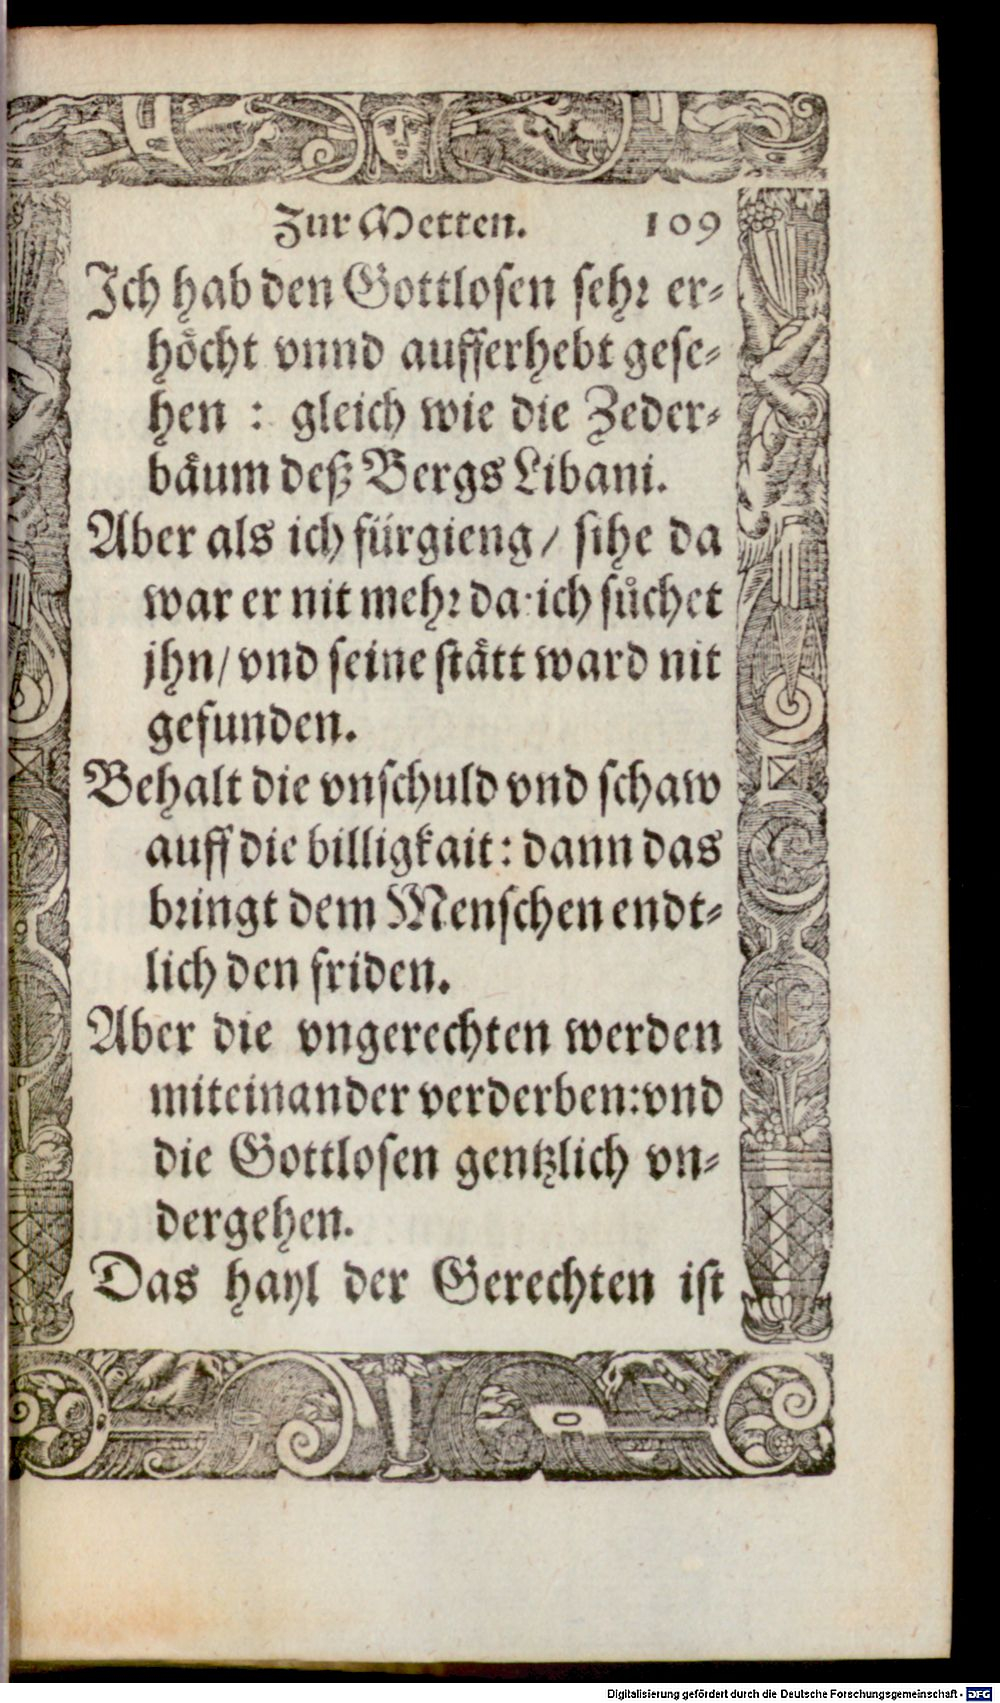 Zur Metten. 109
Ich hab den Gottlosen sehr er-
höcht vnnd aufferhebt gese-
hen : gleich wie die Zeder-
bäum deß Bergs Libani.
Aber als ich fürgieng / sihe da
war er nit mehr da: ich sůchet
jhn / vnd seine stätt ward nit
gefunden.
Behalt die vnschuld vnd schaw
auff die billigkait : dann das
bringt dem Menschen endt-
lich den friden.
Aber die vngerechten werden
miteinander verderben: vnd
die Gottlosen gentzlich vn-
dergehen.
Das hayl der Gerechten ist
Digitalisierung gefördert durch die Deutsche Forschungsgemeinschaft - DFG